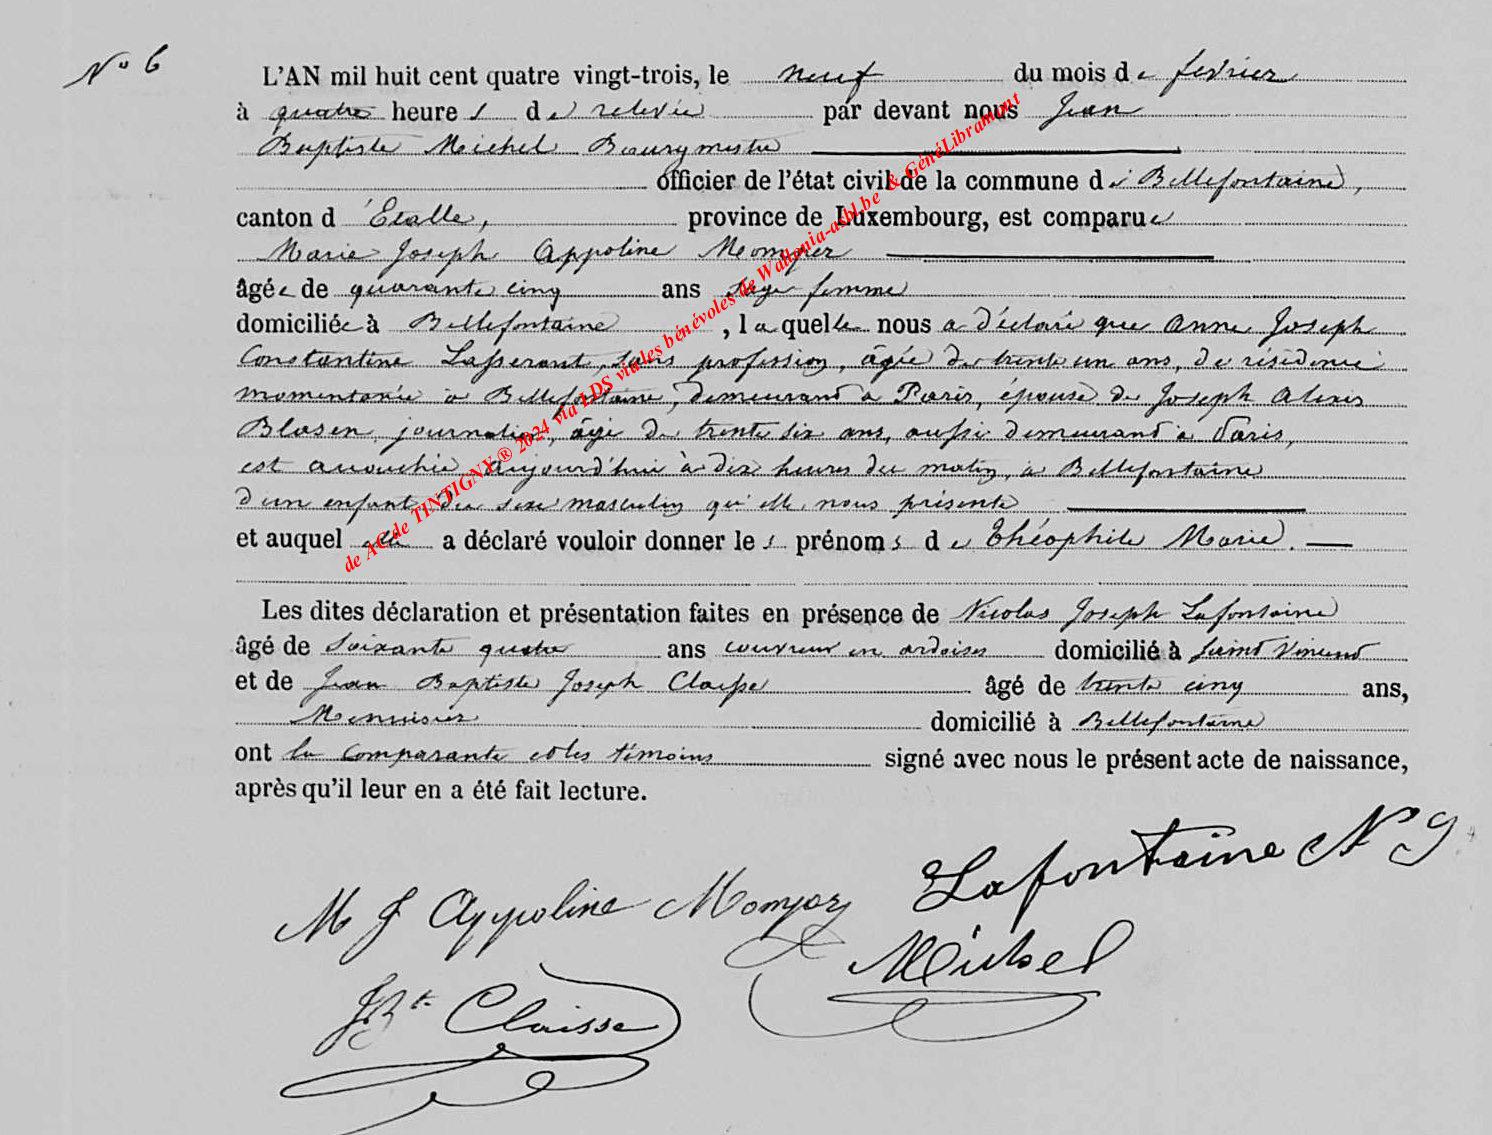 N° 6
L'AN mil huit cent quatre vingt-trois, le neuf du mois de fevrier
à quatre heures de relevée par devant nous Jean
Baptiste Michel Bourgmestre
officier de l'état civil de la commune de Bellefontaine,
canton d'Etalle, province de Luxembourg, est comparue
Marie Joseph Appoline Momper
âgée de quarante cinq ans sage femme
domiciliée à Bellefontaine, laquelle nous a déclaré que Anne Joseph
Constantine Lasserant, sans profession, âgée de trente un ans, de résidence
momentanée à Bellefontaine, demeurand à Paris, épouse de Joseph Alexis
Blasen, journalier, âgé de trente six ans, aussi demeurand à Paris,
est accouchée aujourd'hui à dix heures du matin, à Bellefontaine
d'un enfant du sexe masculin qu'elle nous présente
et auquel elle a déclaré vouloir donner les prénoms de Théophile Marie.
Les dites déclaration et présentation faites en présence de Nicolas Joseph Lafontaine
âgé de soixante quatre ans couvreur en ardoises domicilié à Saint Vincend
et de Jean Baptiste Joseph Claisse âgé de trente cinq ans,
Menuisier domicilié à Bellefontaine
ont la comparante et les témoins signé avec nous le présent acte de naissance,
après qu'il leur en a été fait lecture.
Lafontaine N J
M J Appoline Momper
Michel
J Bt Claisse
de AC de TINTIGNY ® 2024 via LDS via les bénévoles de Wallonia-asbl.be & GénéLibramont